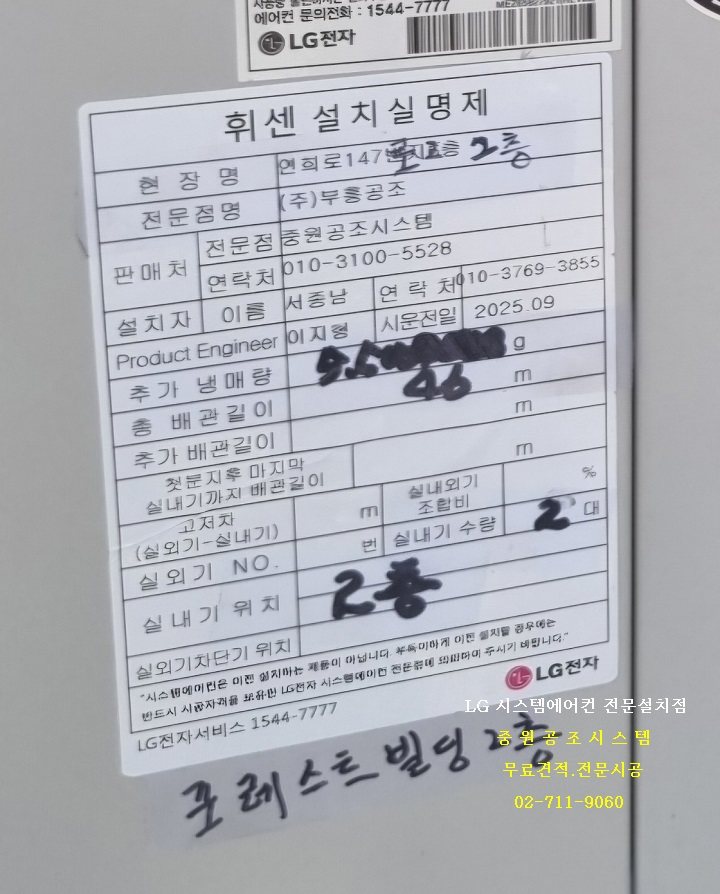 에어컨 문의전화 : 1544-7777
LG전자
휘센 설치실명제
현 장 명 연희로147 2층
전문점명 (주)부흥공조
판매처 전문점 중원공조시스템
연락처 010-3100-5528
설치자 이름 서종남 연 락 처 010-3769-3855
Product Engineer 이지형 시운전일 2025.09
추가 냉매량 g
총 배관길이 46 m
추가 배관길이 m
첫분지후 마지막
실내기까지 배관길이 m
고저차
(실외기-실내기) m 실내외기
조합비 %
실외기 NO. 번 실내기 수량 2 대
실내기 위치 2층
실외기차단기 위치
"시스템에어컨은 이전 설치하는 제품이 아닙니다. 부득이하게 이전 설치할 경우에는
반드시 시공자격을 보유한 LG전자 시스템에어컨 전문점에 의뢰하여 주시기 바랍니다."
LG전자서비스 1544-7777
LG전자
포레스트빌딩 2층
LG 시스템에어컨 전문설치점
중원공조시스템
무료견적.전문시공
02-711-9060